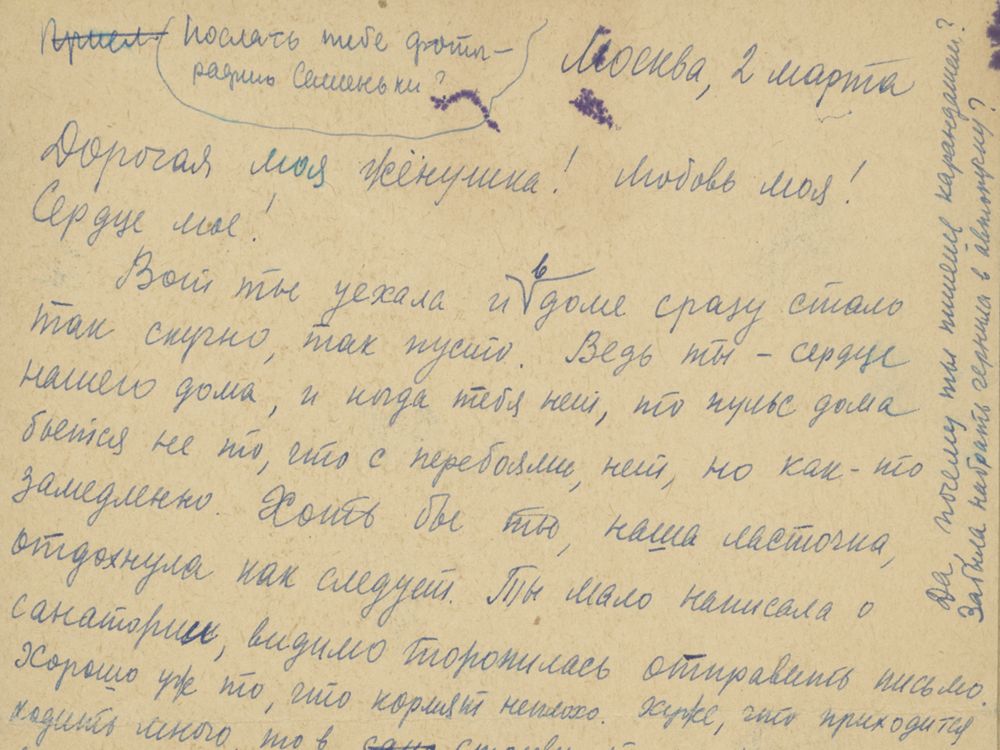 Пришл Послать тебе фоты-
рафию Семеньки?
Москва, 2 марта
Дорогая моя жёнушка! Любовь моя!
Сердце мое!
Вот ты уехала и в доме сразу стало
так скучно, так пусто. Ведь ты - сердце
нашего дома, и когда тебя нет, то пульс дома
бьется не то, что с перебоями, нет, но как-то
замедленно. Хоть бы ты, наша ласточка,
отдохнула как следует. Ты мало написала о
санатории, видимо торопилась отправить письмо.
Хорошо уж то, что кормят неплохо. Хуже, что приходится
ходить много, то в
Да, почему ты пишешь карандашом?
Забыла набрать чернила в авторучку?